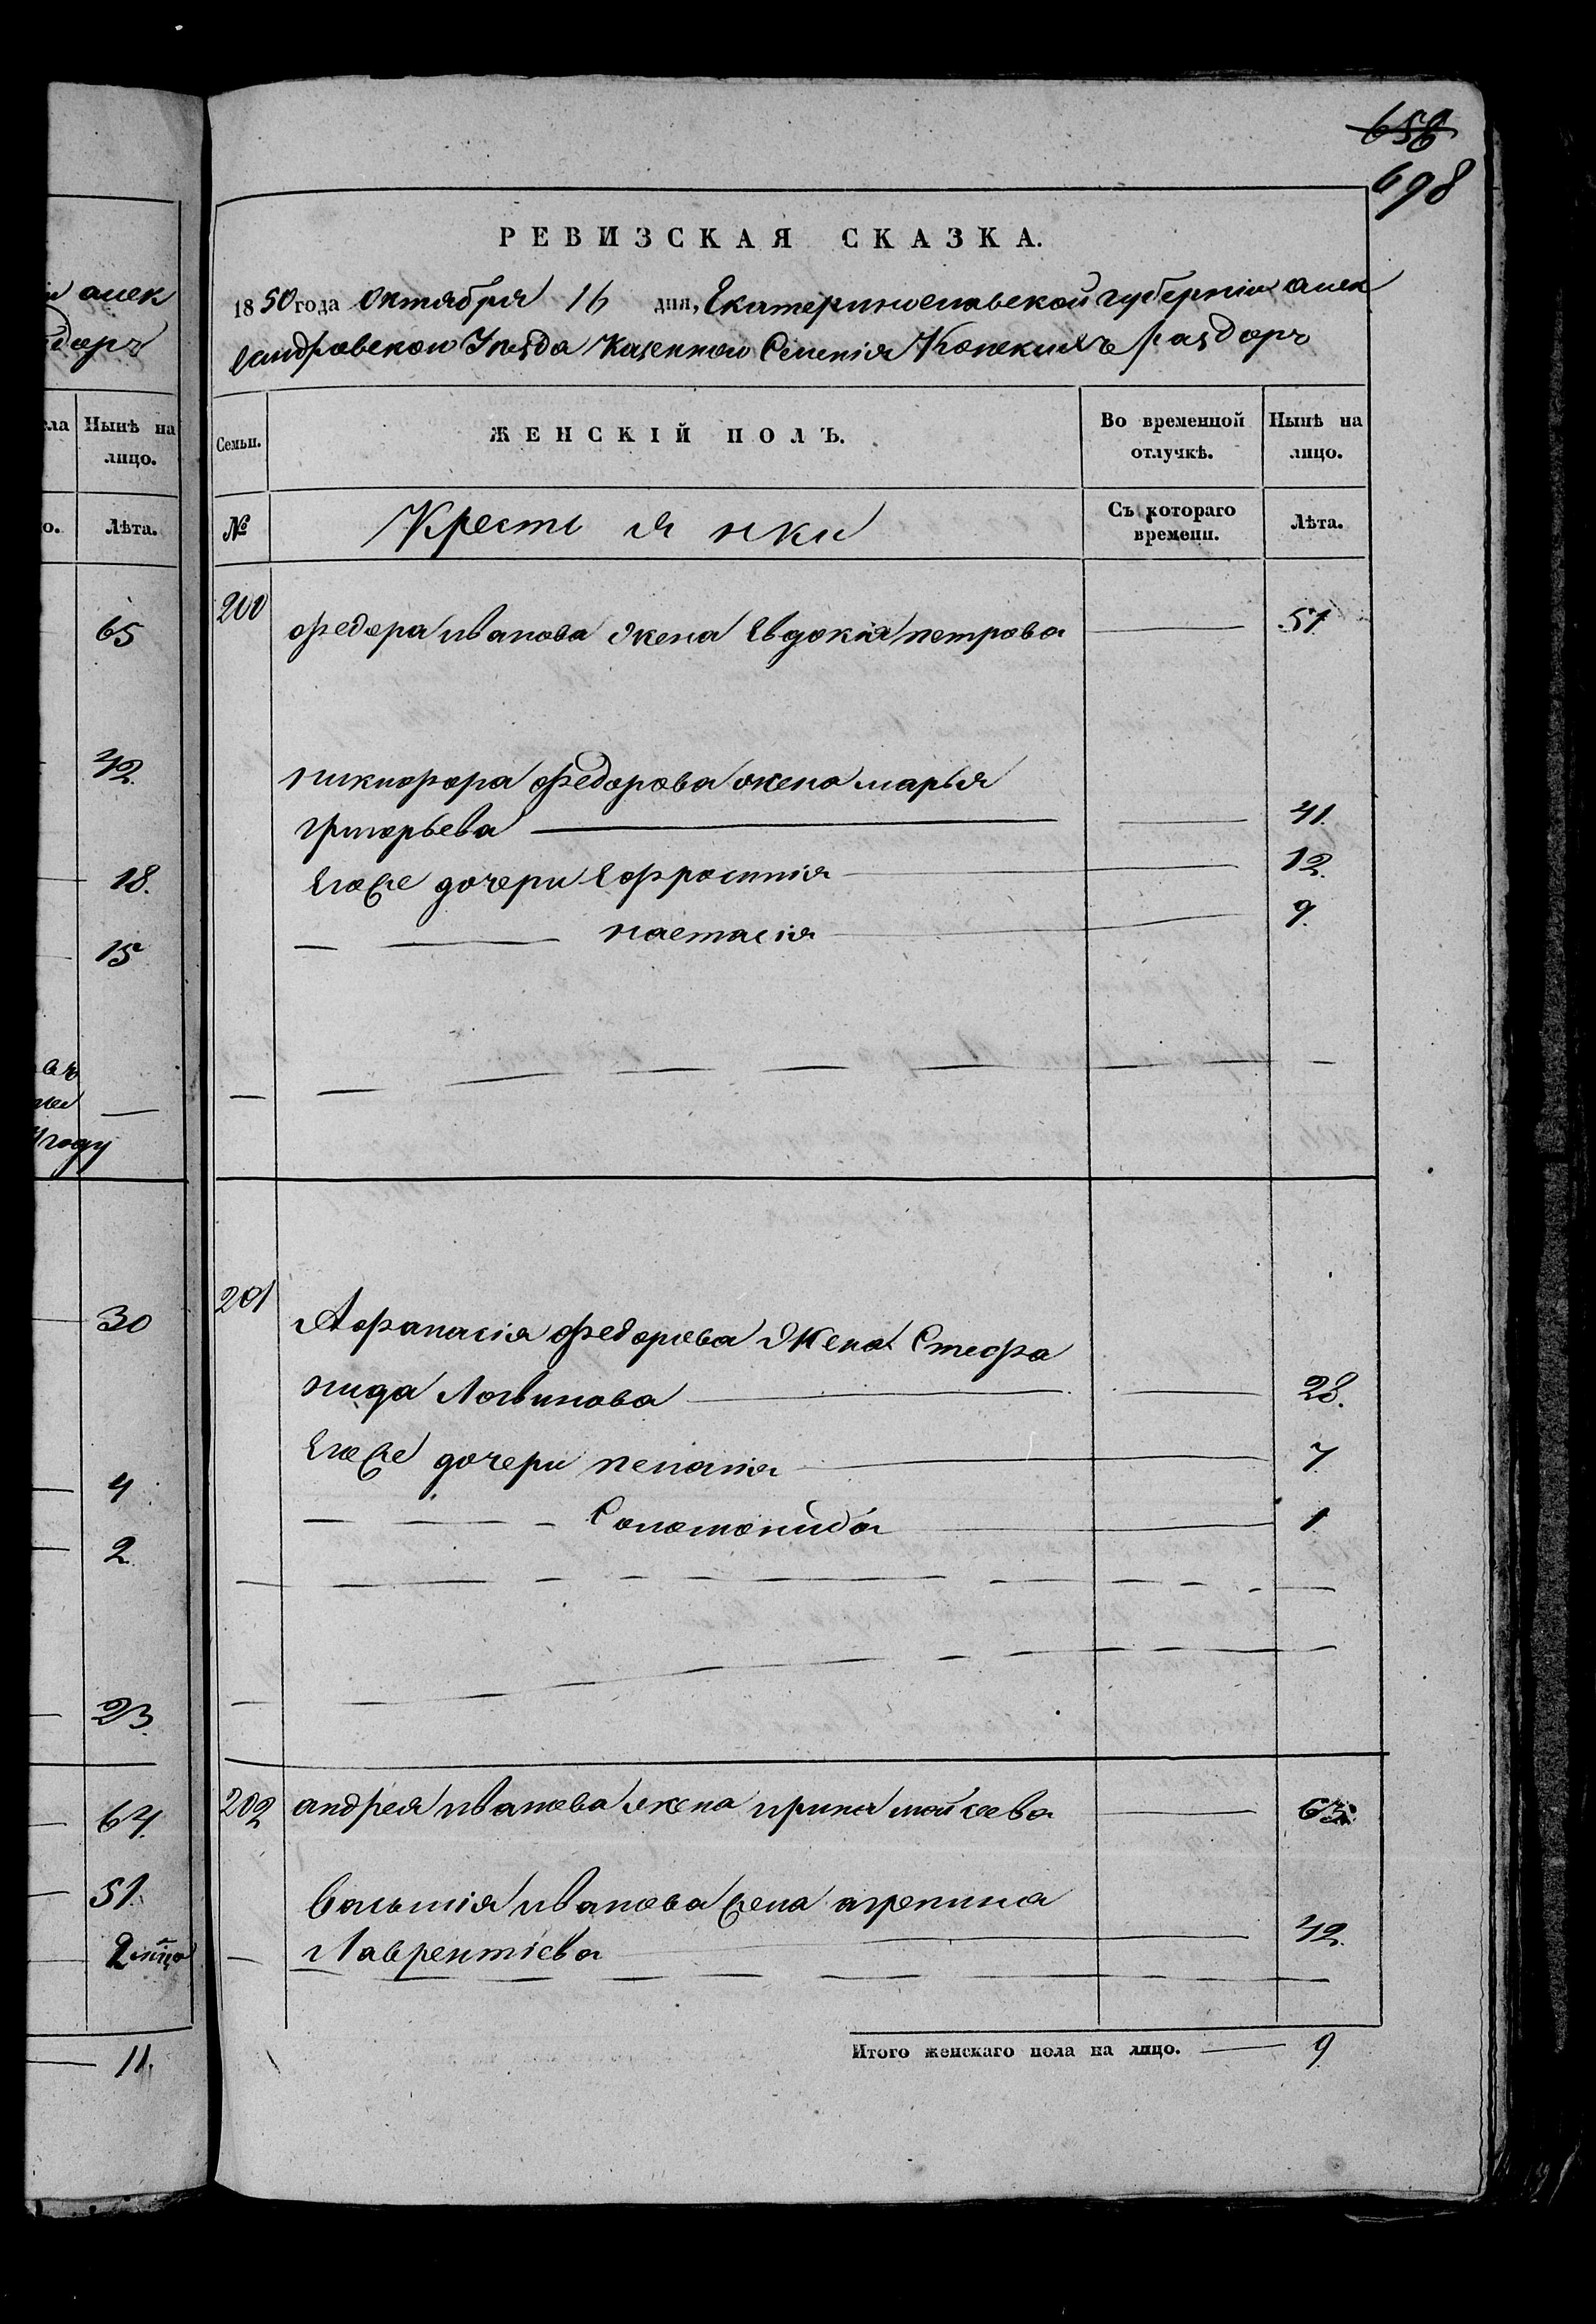 656
698
РЕВИЗСКАЯ СКАЗКА.
1850 года Октября 16 дня, Екатеринославской губерніи алек
сандровского Уезда Казенного Селенія Конскихъ раздоръ
Семьи.
ЖЕНСКІЙ ПОЛЪ.
Во временной отлучкѣ.
Нынѣ на лицо.
№
Крестьянки
Съ котораго времени.
Лѣта.
200
федора иванова жена Евдокия петрова — 51
никифора федорова жена марья
григорьева — 41.
Егоже дочери Ефросинія — 12.
— — настасія — 9.
201
Афанасія федорова Жена Стефа
нида Логвинова — 28.
Егоже дочери пелагия — 7
— — Соломонида — 1
202 андрея иванова жена ирина мойсеева — 63
Василия иванова жена агрепина
Лаврентіева — 42.
Итого женскаго пола на лицо. — 9
алек
доръ
ла
Нынѣ на
лицо.
о.
Лѣта.
65
42.
18.
15
году
30
4
2
23.
64.
51.
11.